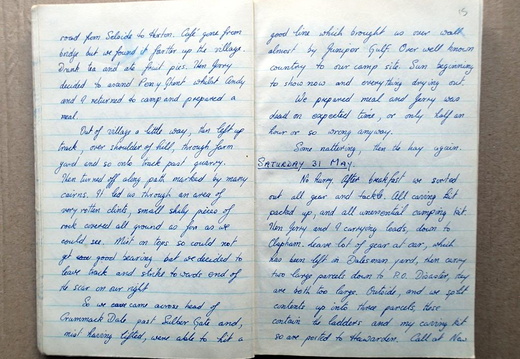 road from Selside to Horton. Café gone from
bridge but we found it farther up the village.
Drunk tea and ate fruit pies. Then Gerry
decided to ascend Pen y Ghent whilst Andy
and I returned to camp and prepared a
meal.
Out of village a little way, then left up
track, over shoulder of hill, through farm
yard and so onto track past quarry.
Then turned off along path marked by many
cairns. It led us through an area of
very rotten clints, small shaly pieces of
rock covered all ground as far as we
could see. Mist on tops so could not
get good bearing but we decided to
leave track and strike towards end of
the scar on our right
So we came across head of
Crummack Dale, past Sulber Gate and,
mist having lifted, were able to hit a
13
good line which brought us over wall
almost by Juniper Gulf. Over well known
country to our camp site. Sun beginning
to show now and everything drying out.
We prepared meal and Gerry was
dead on expected time, or only half an
hour or so wrong anyway.
Some nattering, then to kip again.
SATURDAY 31 MAY.
No hurry. After breakfast we sorted
out all gear and tackle. All caving kit
packed up, and all unessential camping kit.
Then Gerry and I carrying loads, down to
Clapham. Leave lot of gear at car, which
has been left in Dalesman yard, then carry
two large parcels down to P.O. Disaster, they
are both too large. Outside, and we split
contents up into three parcels, these
contain the ladders and my caving kit
so are posted to Hawarden. Call at New